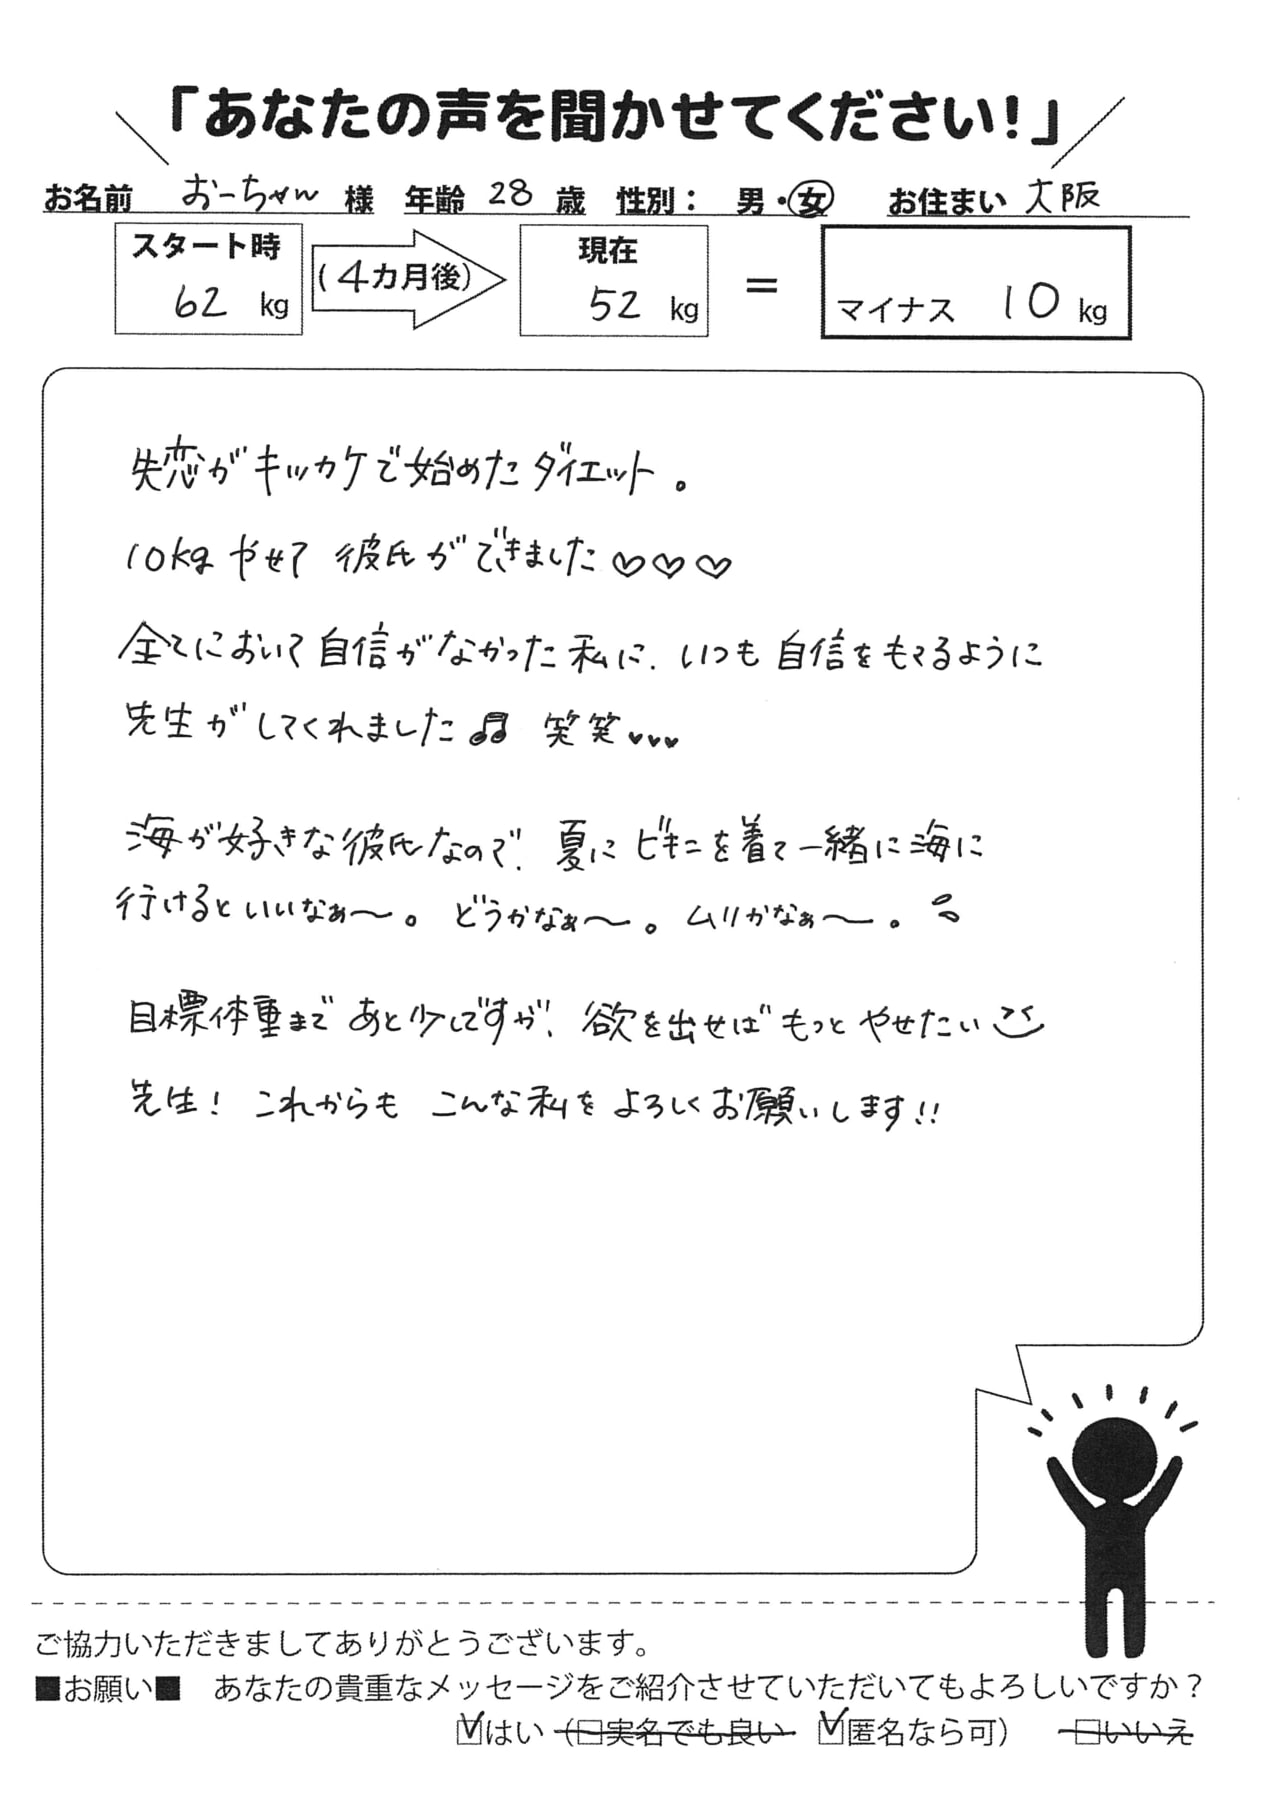 「あなたの声を聞かせてください!」
お名前 おーちゃん 様 年齢 28 歳 性別： 男・女 お住まい 大阪
スタート時 (4カ月後) 現在
62 kg 52 kg = マイナス 10 kg
失恋がキッカケで始めたダイエット。
10kgやせて 彼氏ができました♡♡♡
全てにおいて自信がなかった私に、いつも自信をもてるように
先生がしてくれました♫ 笑笑♥♥♥
海が好きな彼氏なので、夏にビキニを着て一緒に海に
行けるといいなぁ〜。どうかなぁ〜。ムリかなぁ〜。
目標体重まであと少しですが、欲を出せばもっとやせたい
先生! これからも こんな私をよろしくお願いします!!
ご協力いただきましてありがとうございます。
■お願い■ あなたの貴重なメッセージをご紹介させていただいてもよろしいですか？
☑はい（□実名でも良い ☑匿名なら可） □いいえ